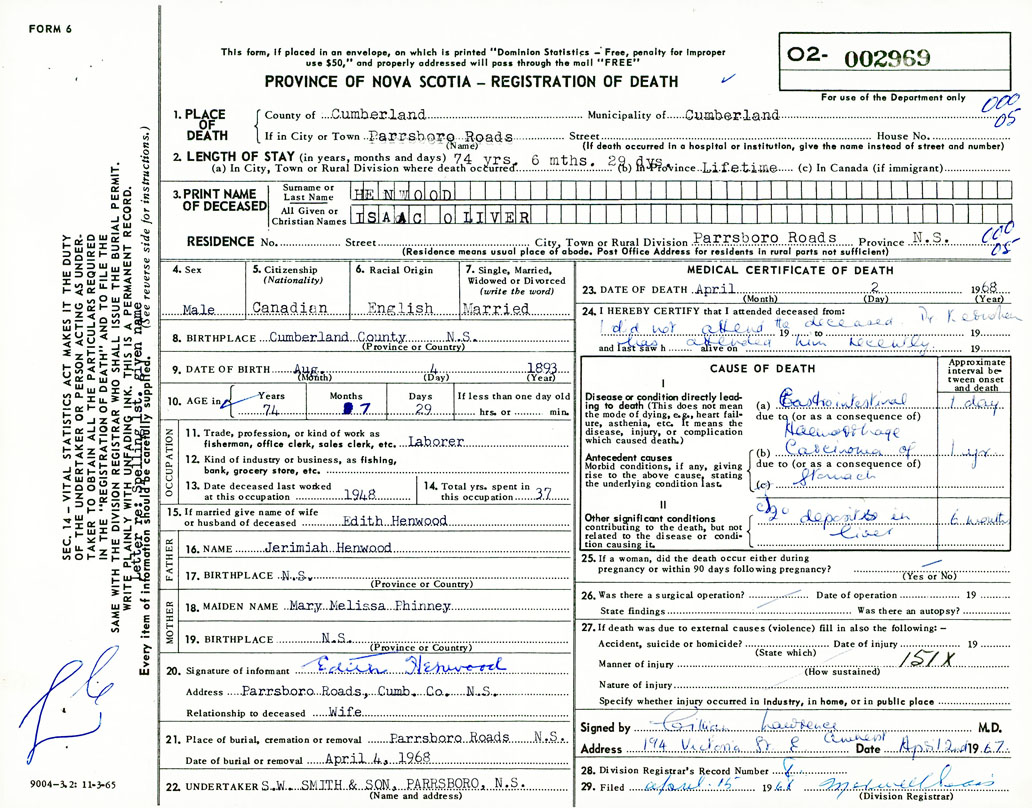 FORM 6
This form, if placed in an envelope, on which is printed "Dominion Statistics – Free, penalty for improper
use $50," and properly addressed will pass through the mail "FREE"
PROVINCE OF NOVA SCOTIA – REGISTRATION OF DEATH
O2- 002969
For use of the Department only
000
05
1. PLACE OF DEATH
County of Cumberland Municipality of Cumberland
If in City or Town Parrsboro Roads Street House No.
(Name) (If death occurred in a hospital or institution, give the name instead of street and number)
2. LENGTH OF STAY (in years, months and days) 74 yrs. 6 mths. 29 dys.
(a) In City, Town or Rural Division where death occurred (b) In Province Lifetime (c) In Canada (if immigrant)
3. PRINT NAME OF DECEASED
Surname or Last Name HENWOOD
All Given or Christian Names ISAAC OLIVER
RESIDENCE No. Street City, Town or Rural Division Parrsboro Roads Province N.S.
(Residence means usual place of abode. Post Office Address for residents in rural parts not sufficient)
000
05
SEC. 14 – VITAL STATISTICS ACT MAKES IT THE DUTY
OF THE UNDERTAKER OR PERSON ACTING AS UNDER-
TAKER TO OBTAIN ALL THE PARTICULARS REQUIRED
IN THE "REGISTRATION OF DEATH" AND TO FILE THE
SAME WITH THE DIVISION REGISTRAR WHO SHALL ISSUE THE BURIAL PERMIT.
WRITE PLAINLY WITH UNFADING INK. THIS IS A PERMANENT RECORD.
Letter re: spelling 1st. given name
Every item of information should be carefully supplied. (See reverse side for instructions.)
4. Sex
Male
5. Citizenship
(Nationality)
Canadian
6. Racial Origin
English
7. Single, Married,
Widowed or Divorced
(write the word)
Married
8. BIRTHPLACE Cumberland County N.S.
(Province or Country)
9. DATE OF BIRTH Aug. 4 1893
(Month) (Day) (Year)
10. AGE in
Years Months Days If less than one day old
74 7 29 hrs. or min.
OCCUPATION
11. Trade, profession, or kind of work as
fisherman, office clerk, sales clerk, etc. laborer
12. Kind of industry or business, as fishing,
bank, grocery store, etc.
13. Date deceased last worked
at this occupation 1948
14. Total yrs. spent in
this occupation 37
15. If married give name of wife
or husband of deceased Edith Henwood
FATHER
16. NAME Jerimiah Henwood
17. BIRTHPLACE N.S.
(Province or Country)
MOTHER
18. MAIDEN NAME Mary Melissa Phinney
19. BIRTHPLACE N.S.
(Province or Country)
20. Signature of informant Edith Henwood
Address Parrsboro Roads, Cumb. Co. N.S.
Relationship to deceased Wife
21. Place of burial, cremation or removal Parrsboro Roads N.S.
Date of burial or removal April 4, 1968
22. UNDERTAKER S.W. SMITH & SON, PARRSBORO, N.S.
(Name and address)
9004-3.2: 11-3-65
MEDICAL CERTIFICATE OF DEATH
23. DATE OF DEATH April 2 1968
(Month) (Day) (Year)
24. I HEREBY CERTIFY that I attended deceased from:
I did not attend the deceased Dr
19 to 19
has attended him recently
and last saw h alive on 19
CAUSE OF DEATH
Approximate
interval be-
tween onset
and death
I
Disease or condition directly lead-
ing to death (This does not mean
mode of dying, e.g., heart fail-
ure, asthenia, etc. It means the
disease, injury, or complication
which caused death.)
(a) Gastrointestinal 1 day
due to (or as a consequence of)
Haemorrhage
Antecedent causes
Morbid conditions, if any, giving
rise to the above cause, stating
the underlying condition last.
(b) Carcinoma of 1 yr
due to (or as a consequence of)
(c) Stomach
II
Other significant conditions
contributing to the death, but not
related to the disease or condi-
tion causing it.
2° deposits in 6 month
liver
25. If a woman, did the death occur either during
pregnancy or within 90 days following pregnancy?
(Yes or No)
26. Was there a surgical operation? Date of operation 19
State findings Was there an autopsy?
27. If death was due to external causes (violence) fill in also the following: –
Accident, suicide or homicide? Date of injury 19
(State which)
Manner of injury 151X
(How sustained)
Nature of injury
Specify whether injury occurred in Industry, in home, or in public place
Signed by Lawrence M.D.
Address 194 Victoria St. E Amherst Date April 2nd 1967.
28. Division Registrar's Record Number 8
29. Filed April 15 1968
(Division Registrar)